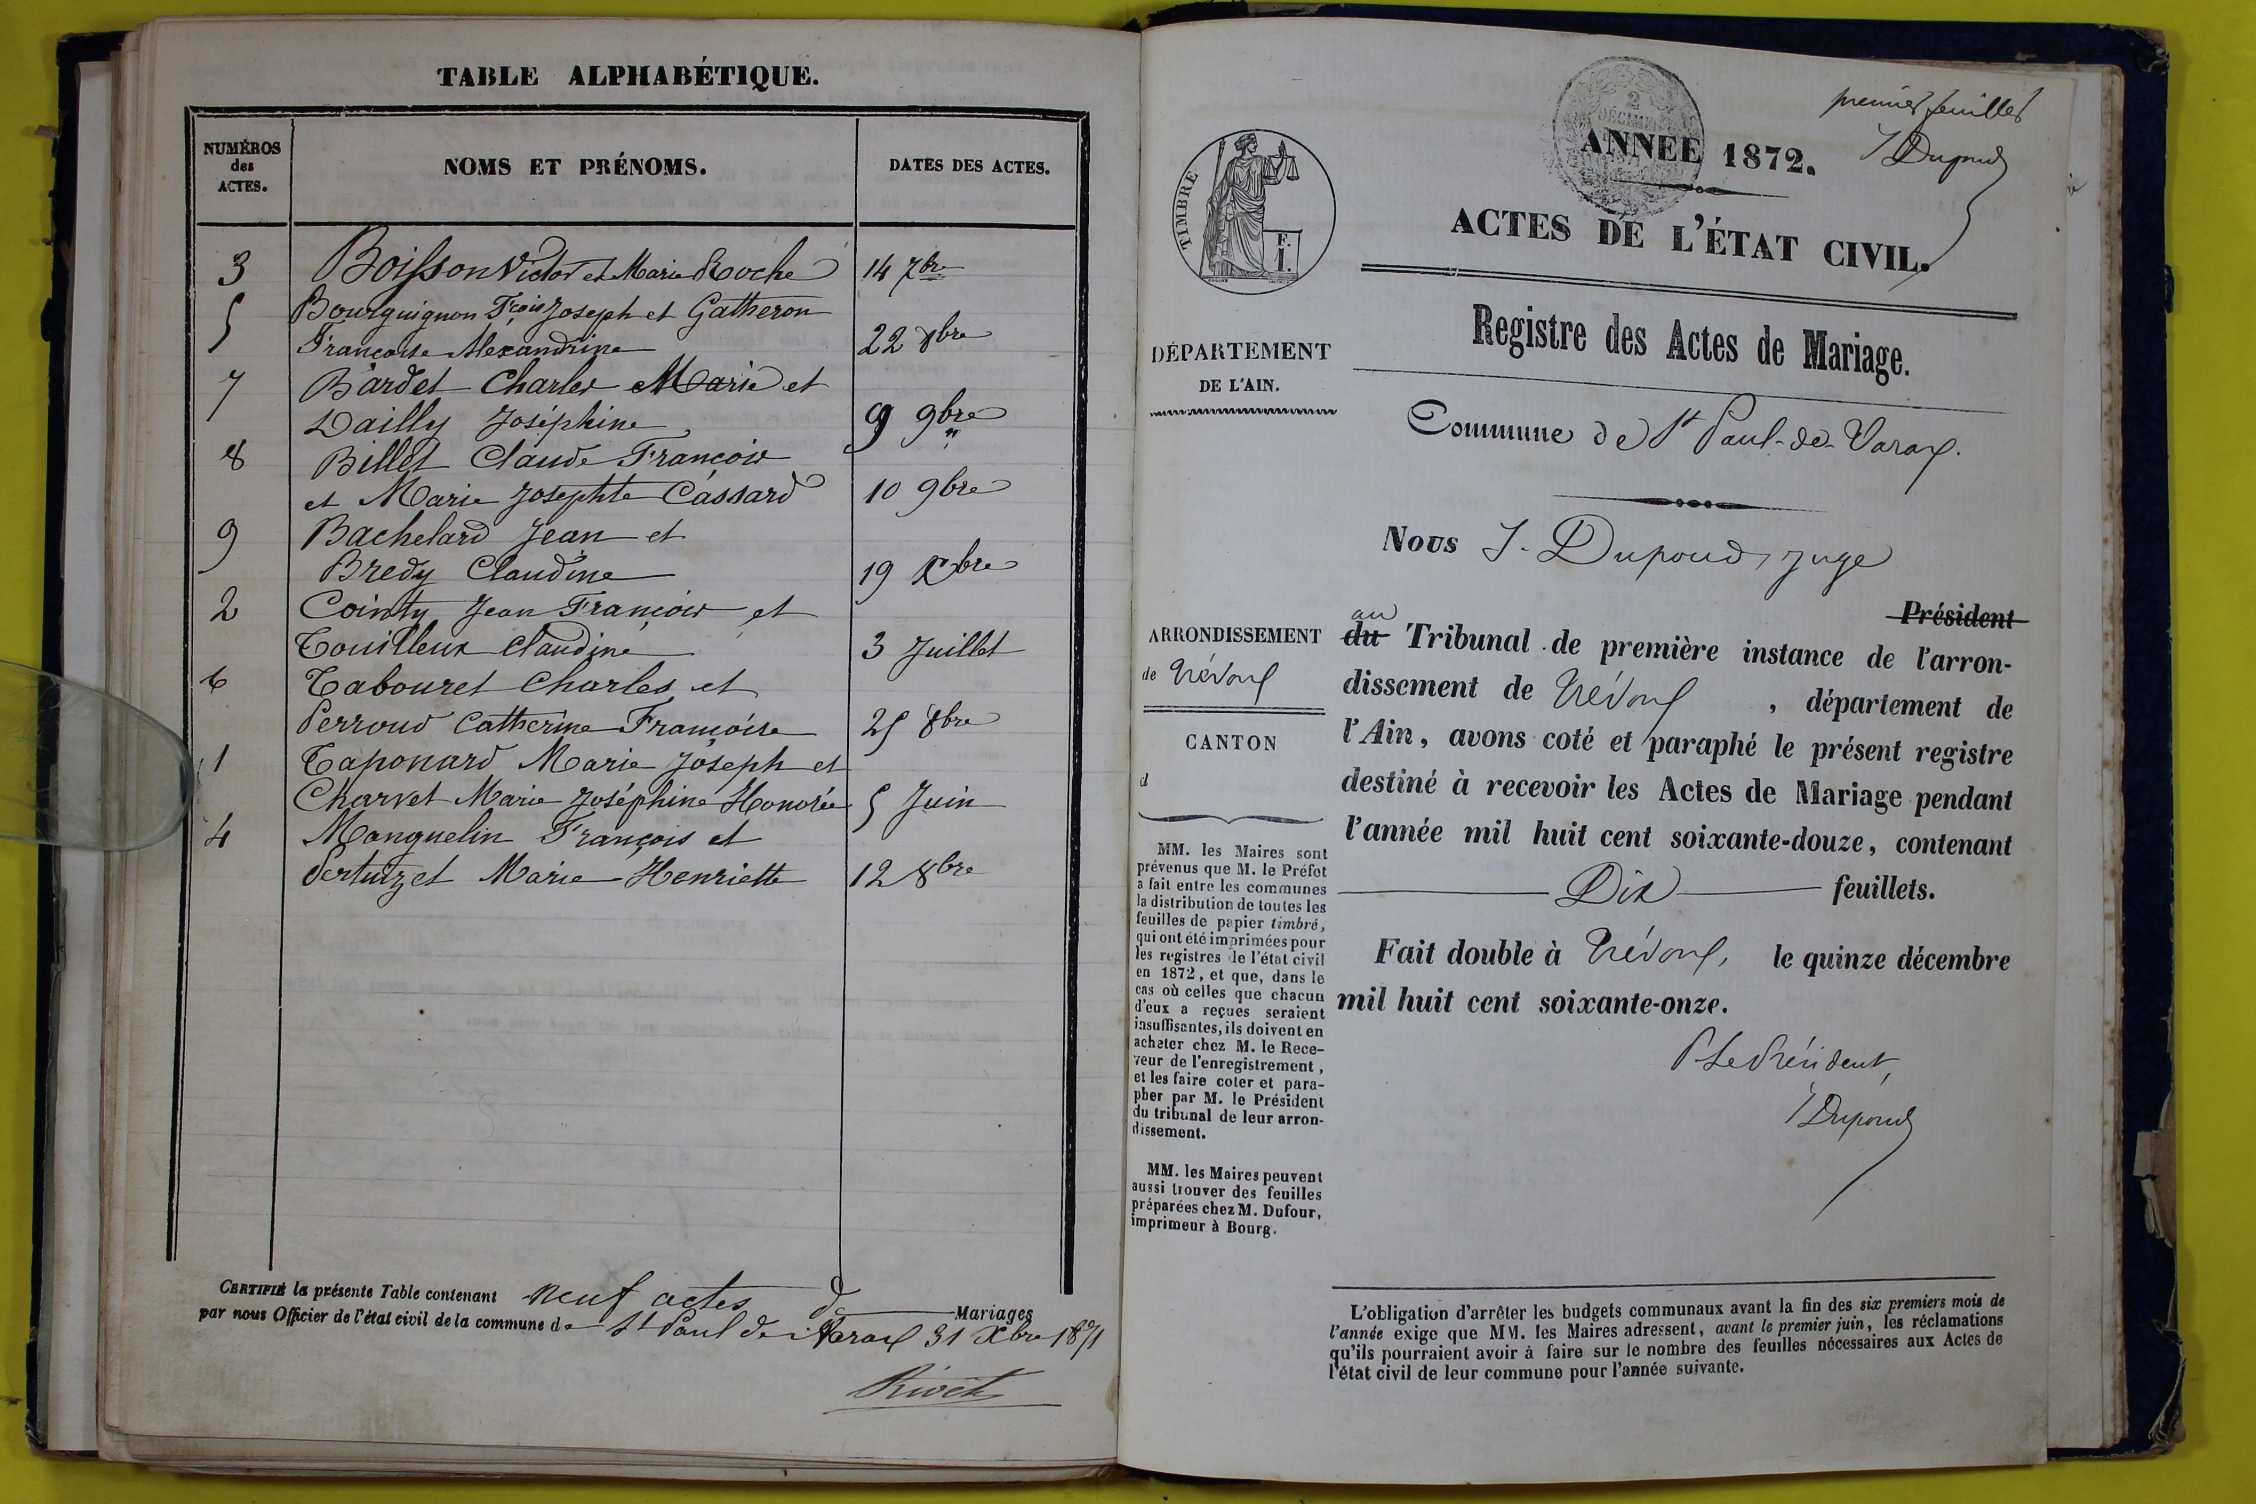 TABLE ALPHABÉTIQUE.
NUMÉROS des ACTES.
NOMS ET PRÉNOMS.
DATES DES ACTES.
3 Boisson Victor et Marie Roche 14 7bre
5 Bourguignon Fçois Joseph et Gatheron
Françoise Alexandrine 22 8bre
7 Bardet Charles Marie et
Dailly Joséphine 9 9bre
8 Billet Claude François
et Marie Josephte Cassard 10 9bre
9 Bachelard Jean et
Bredy Claudine 19 Xbre
2 Cointy Jean François et
Touilleux Claudine 3 Juillet
6 Tabouret Charles et
Perroud Catherine Françoise 25 8bre
1 Taponard Marie Joseph et
Charvet Marie Joséphine Honorée 5 Juin
4 Manguelin François et
Pertuizet Marie Henriette 12 8bre
CERTIFIÉ la présente Table contenant neuf actes de Mariages
par nous Officier de l'état civil de la commune de St Paul de Varax 31 Xbre 1871
Rivet
premier feuillet
J Dupoud
2
DÉCIMES
ANNÉE 1872.
ACTES DE L'ÉTAT CIVIL.
TIMBRE
F.
I.
Registre des Actes de Mariage.
DÉPARTEMENT
DE L'AIN.
Commune de St Paul-de-Varax.
Nous J. Dupoud, juge
Président
au
du Tribunal de première instance de l'arron-
dissement de Trévoux, département de
l'Ain, avons coté et paraphé le présent registre
destiné à recevoir les Actes de Mariage pendant
l'année mil huit cent soixante-douze, contenant
Dix feuillets.
Fait double à Trévoux, le quinze décembre
mil huit cent soixante-onze.
P. Le Président,
J Dupoud
ARRONDISSEMENT
de Trévoux
CANTON
d
MM. les Maires sont
prévenus que M. le Préfet
a fait entre les communes
la distribution de toutes les
feuilles de papier timbré,
qui ont été imprimées pour
les registres de l'état civil
en 1872, et que, dans le
cas où celles que chacun
d'eux a reçues seraient
insuffisantes, ils doivent en
acheter chez M. le Rece-
veur de l'enregistrement,
et les faire coter et para-
pher par M. le Président
du tribunal de leur arron-
dissement.
MM. les Maires peuvent
aussi trouver des feuilles
préparées chez M. Dufour,
imprimeur à Bourg.
L'obligation d'arrêter les budgets communaux avant la fin des six premiers mois de
l'année exige que MM. les Maires adressent, avant le premier juin, les réclamations
qu'ils pourraient avoir à faire sur le nombre des feuilles nécessaires aux Actes de
l'état civil de leur commune pour l'année suivante.